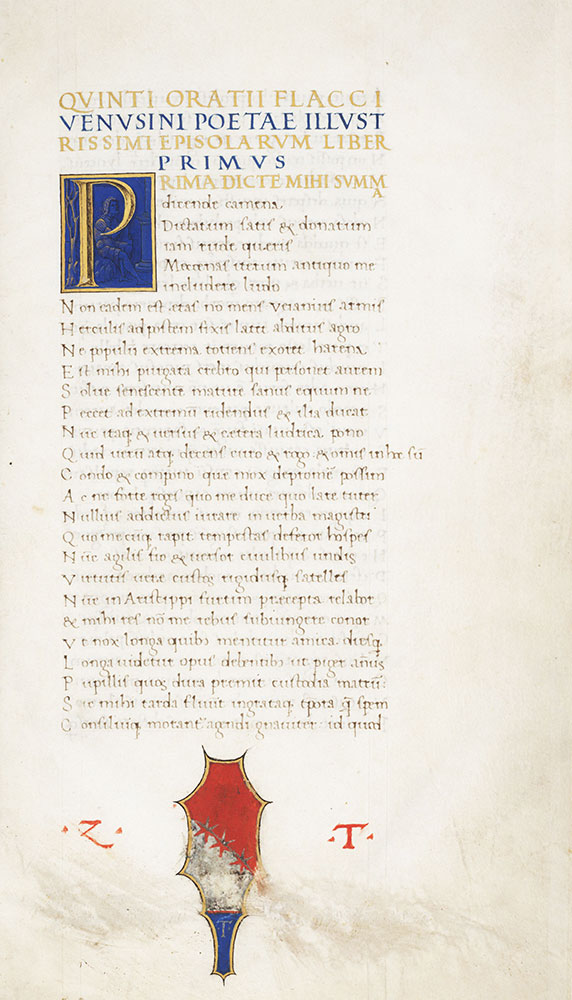 QVINTI ORATII FLACCI
VENUSINI POETAE ILLUST
RISSIMI EPISOLARVM LIBER
PRIMVS
PRIMA DICTE MIHI SVMMA
dicende camena.
Dictatum satis & donatum
iam rude queris
Mœcenas iterum antiquo me
includere ludo
Non eadem est etas nō mens veianius armis
Herculis ad postem fixis latet abditus agro
Ne populū extrema totiens exoret harena
Est mihi purgatā crebro qui personet aurem
Solue senescente mature sanus equum ne
Peccet ad extremū ridendus & ilia ducat
Nūc itaq; & versus & cætera ludicra pono
Quid verū atq; decens curo & rogo & omnis in hoc sū
Condo & compono quæ mox depromē possim
Ac ne forte roges quo me duce quo lare tuter
Nullius addictus iurare in verba magistri
Quo me cūq; rapit tempestas deferor hospes
Nūc agilis fio & versor ciuilibus undis
Virtutis veræ custos rigidusq; satelles
Nūc in Aristippi furtim præcepta relabor
& mihi res nō me rebus subiungere conor
Vt nox longa quib; mentitur amica. diesq;
Longa uidetur opus debentib; ut piger anūs
Pupillis quos dura premit custodia matrū:
Sic mihi tarda fluūt ingrataq; tpora q̄ spem
Consiliūq; morant agendi gnauiter id quod
·Z· ·T·
T